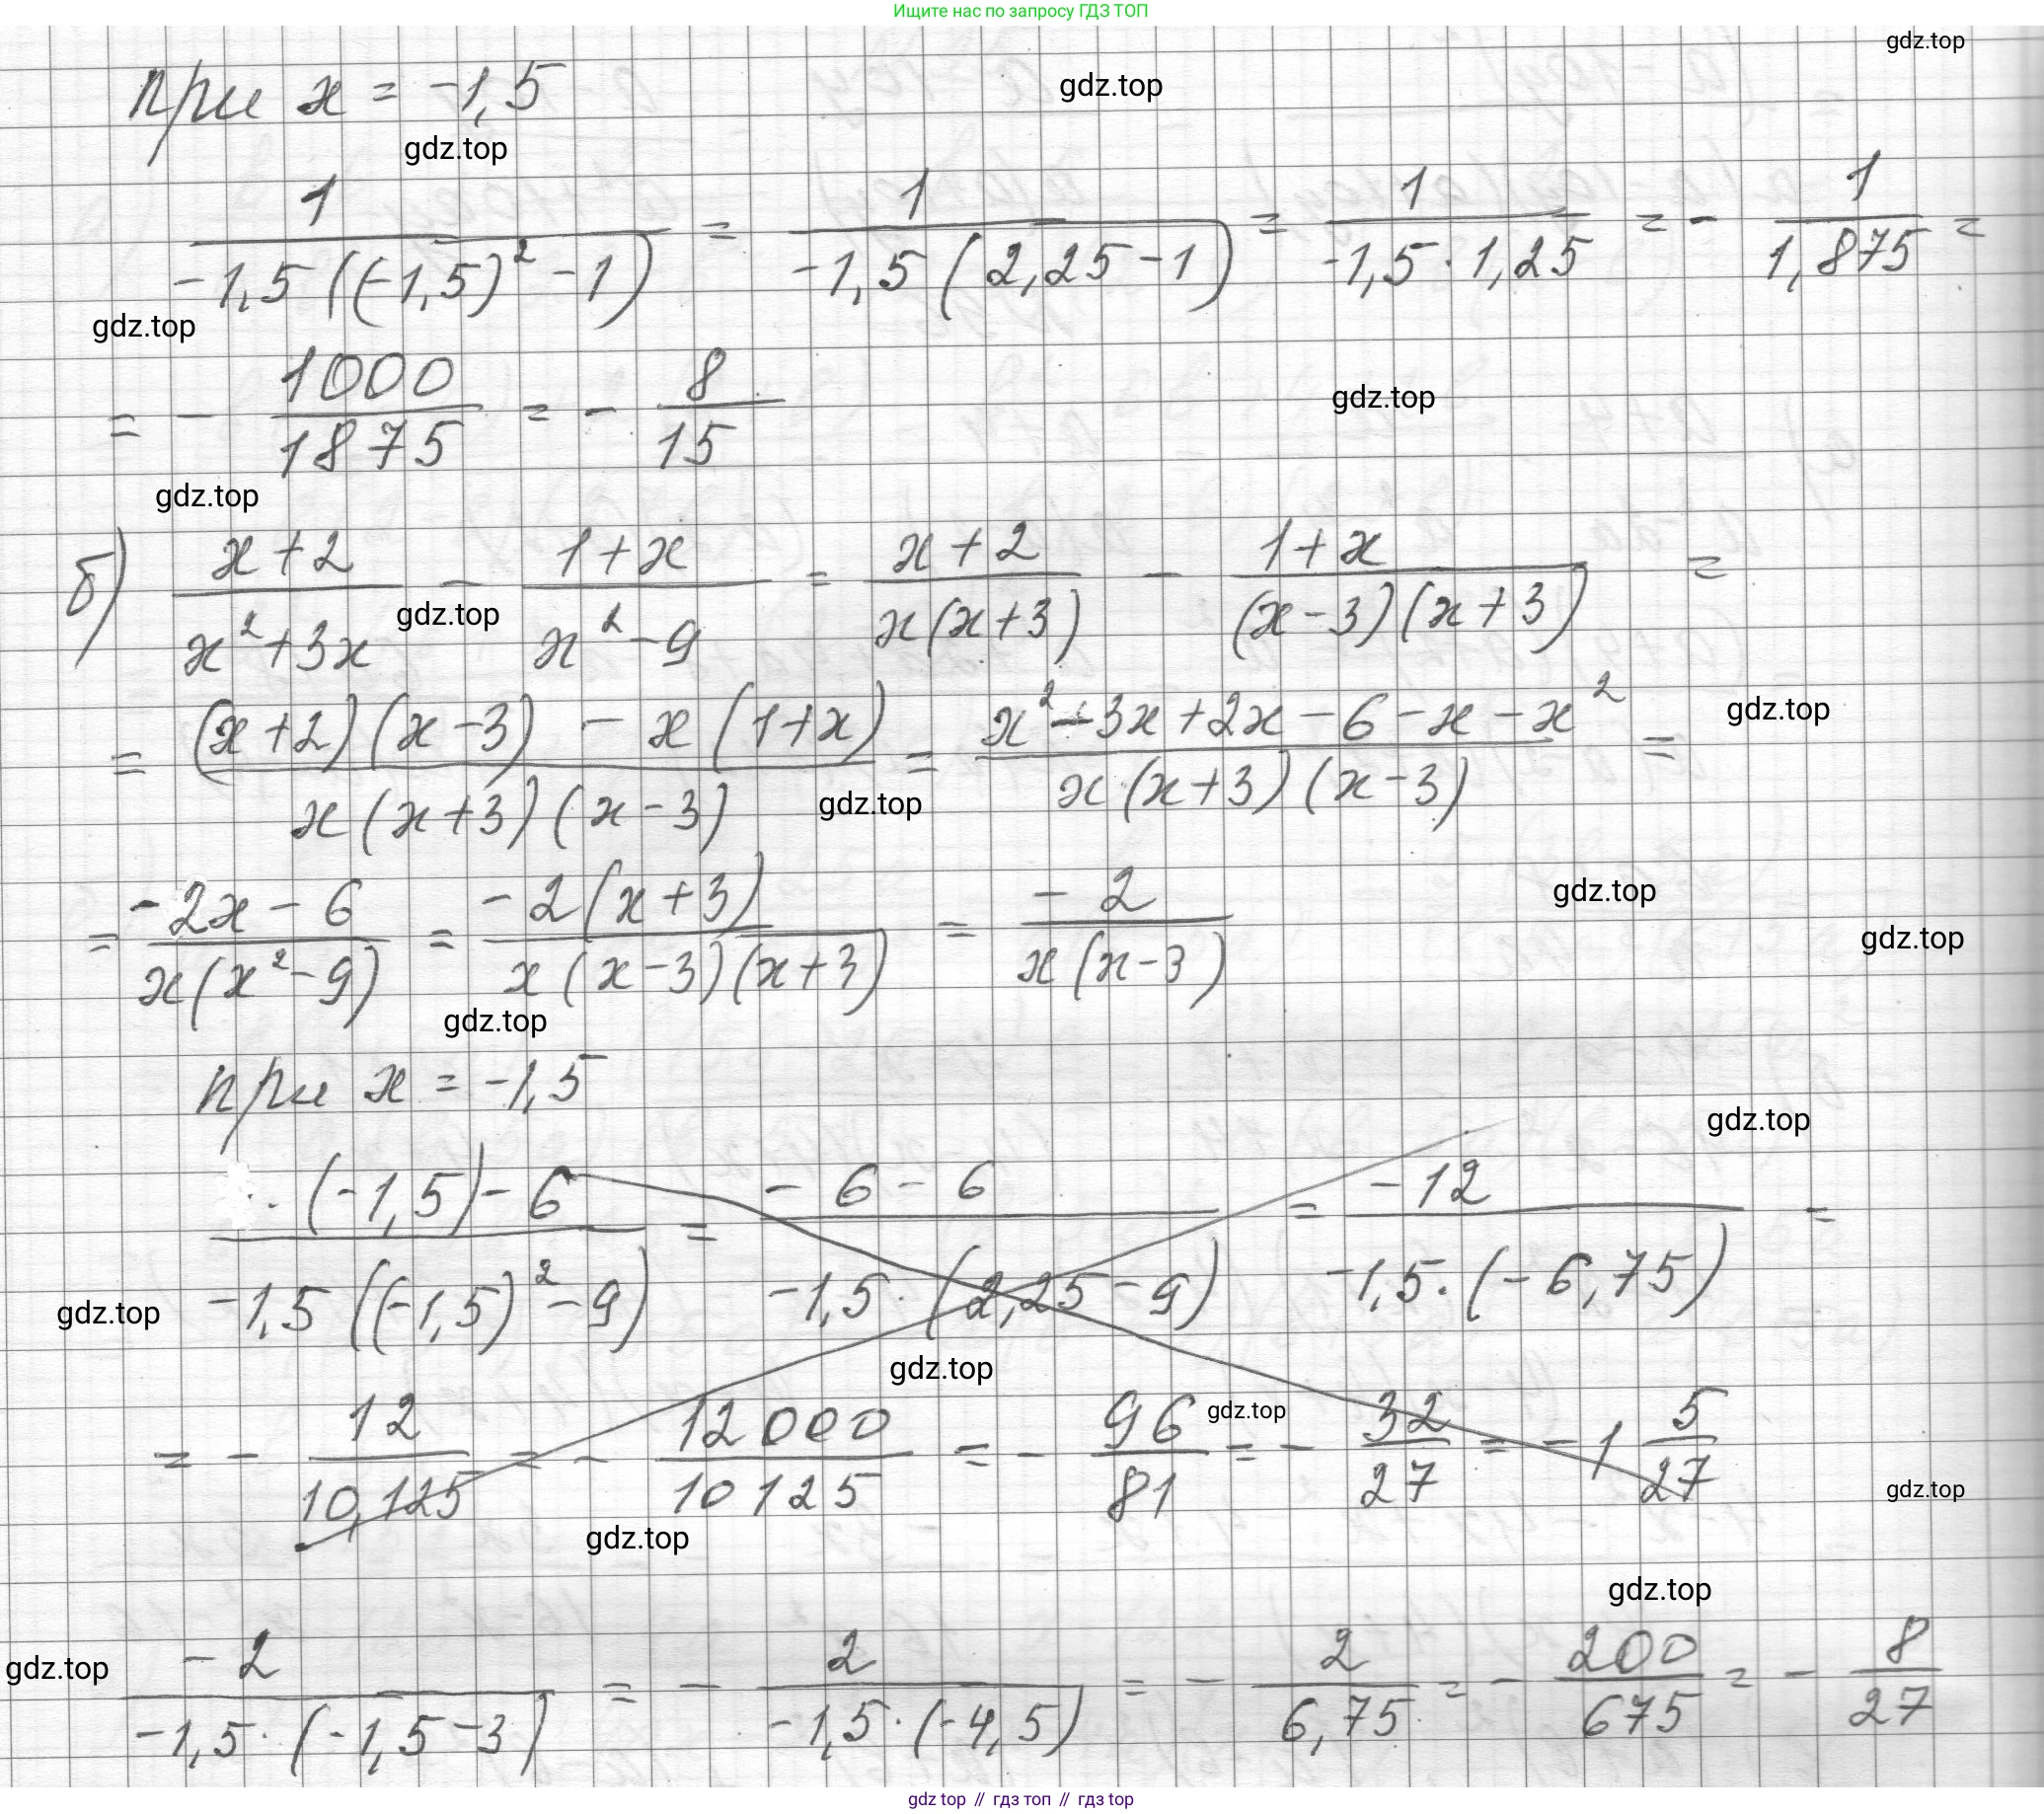 Ищите нас по запросу ГДЗ ТОП
gdz.top
при x = -1,5
gdz.top
gdz.top
1/(-1,5((-1,5)² - 1)) = 1/(-1,5(2,25 - 1)) = 1/(-1,5 · 1,25) = - 1/1,875 =
gdz.top
= - 1000/1875 = - 8/15
gdz.top
gdz.top
б) (x + 2)/(x² + 3x) - (1 + x)/(x² - 9) = (x + 2)/(x(x + 3)) - (1 + x)/((x - 3)(x + 3)) =
gdz.top
= ((x + 2)(x - 3) - x(1 + x))/(x(x + 3)(x - 3)) = (x² - 3x + 2x - 6 - x - x²)/(x(x + 3)(x - 3)) =
gdz.top
gdz.top
= (-2x - 6)/(x(x² - 9)) = (-2(x + 3))/(x(x - 3)(x + 3)) = (-2)/(x(x - 3))
gdz.top
gdz.top
gdz.top
при x = -1,5
gdz.top
(· (-1,5) - 6)/(-1,5((-1,5)² - 9)) = (-6 - 6)/(-1,5 · (2,25 - 9)) = (-12)/(-1,5 · (-6,75)) =
gdz.top
gdz.top
= - 12/10,125 = - 12000/10125 = - 96/81 = - 32/27 = - 1 5/27
gdz.top
gdz.top
gdz.top
gdz.top
gdz.top
(-2)/(-1,5 · (-1,5 - 3)) = - 2/(-1,5 · (-4,5)) = - 2/6,75 = - 200/675 = - 8/27
gdz top // гдз топ // gdz top